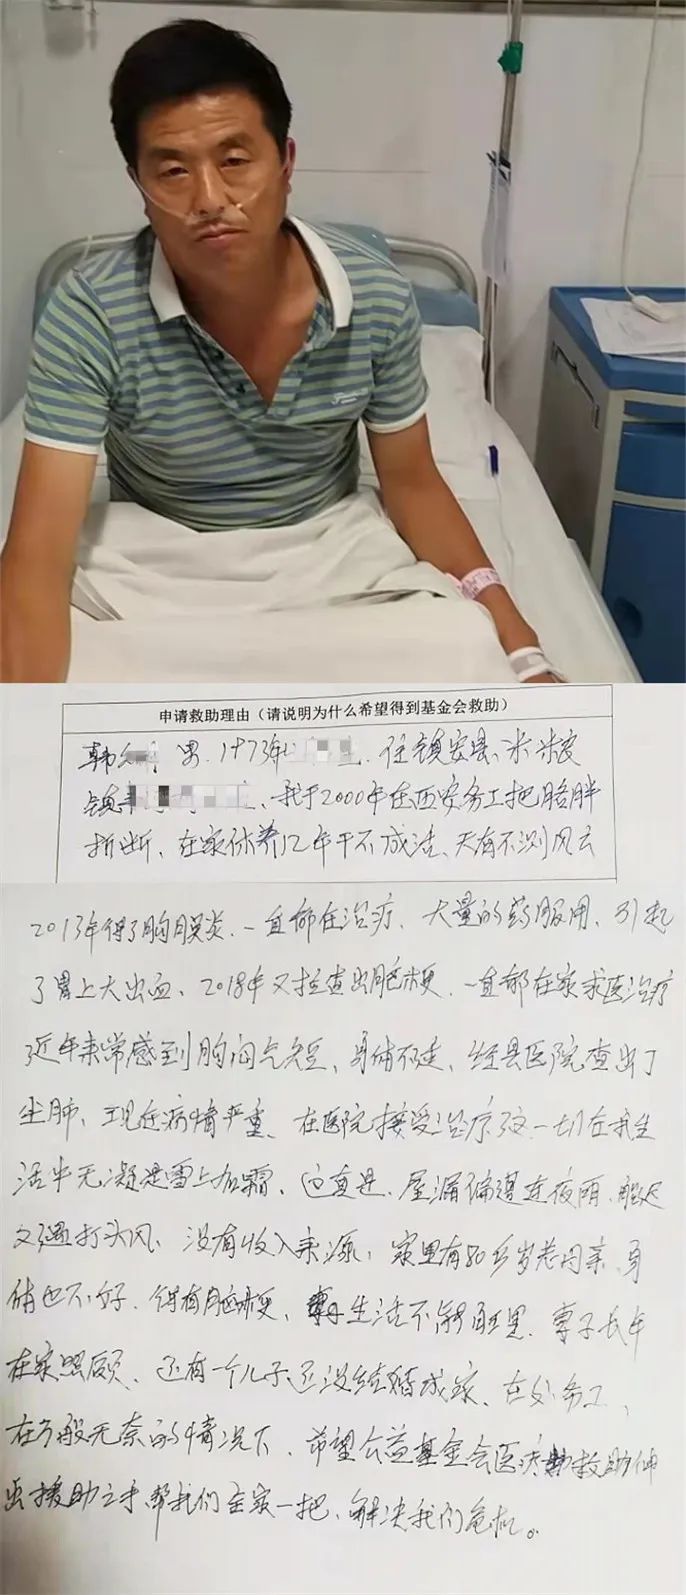 申请救助理由（请说明为什么希望得到基金会救助）
韩 男.1973年 .住镇安县.米粮
镇 、我于2000年在西安务工把胳膊
折断、在家休养12年干不成活、天有不测风云
2013年得了胸膜炎.一直都在治疗、大量的药服用、引起
了胃上大出血、2018年又检查出脑梗.一直都在家求医治疗
近年来常感到胸闷气短、身体不适、经县医院查出了
尘肺、现在病情严重、在医院接受治疗这一切在我生
活中无凝是雪上加霜、这真是、屋漏偏遭连夜雨、船迟
又遇打头风、没有收入来源、家里有80多岁老母亲、身
体也不好、得有脑梗、生活不能自理、妻子长年
在家照顾、还有一个儿子还没结婚成家、在外务工、
在万般无奈的情况下、希望公益基金会医疗救助伸
出援助之手、帮我们全家一把、解决我们危机。